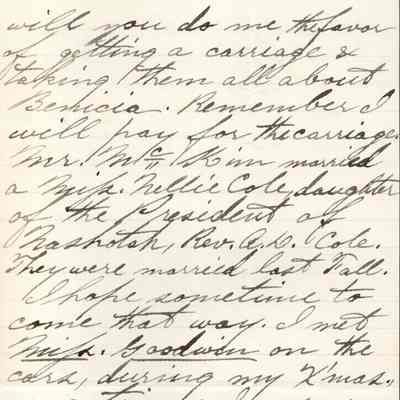 will you do me the favor
of getting a carriage &
taking them all about
Benicia. Remember I
will pay for the carriage.
Mr. Mc Kim married
a Miss. Nellie Cole, daughter
of the President of
Nashotah, Rev. A. D. Cole.
They were married last Fall.
I hope sometime to
come that way. I met
Miss. Goodwin on the
cars, during my X'mas.,